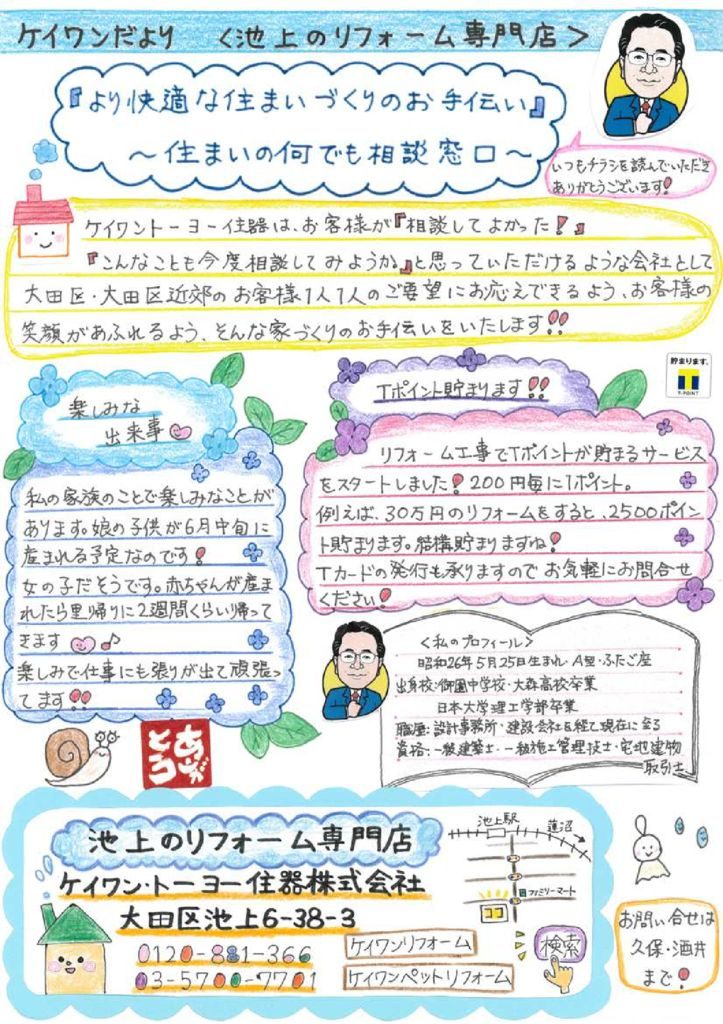 ケイワンだより <池上のリフォーム専門店>
『より快適な住まいづくりのお手伝い』
～住まいの何でも相談窓口～
いつもチラシを読んでいただき
ありがとうございます!
ケイワントーヨー住器は、お客様が『相談してよかった!』
『こんなことも今度相談してみようか。』と思っていただけるような会社として
大田区・大田区近郊のお客様1人1人のご要望にお応えできるよう、お客様の
笑顔があふれるよう、そんな家づくりのお手伝いをいたします!!
楽しみな
出来事
私の家族のことで楽しみなことが
あります。娘の子供が6月中旬に
産まれる予定なのです!
女の子だそうです。赤ちゃんが産ま
れたら里帰りに2週間くらい帰って
きます♪
楽しみで仕事にも張りが出て頑張っ
てます!!
Tポイント貯まります!!
貯まります。
T-POINT
リフォーム工事でTポイントが貯まるサービス
をスタートしました!200円毎に1ポイント。
例えば、30万円のリフォームをすると、2500ポイン
ト貯まります。結構貯まりますね!
Tカードの発行も承りますのでお気軽にお問合せ
ください!
<私のプロフィール>
昭和26年5月25日生まれ・A型・ふたご座
出身校:御園中学校・大森高校卒業
日本大学理工学部卒業
職歴:設計事務所・建設会社を経て現在に至る
資格:一級建築士・一級施工管理技士・宅地建物
取引士
ありがとう
池上のリフォーム専門店
ケイワン・トーヨー住器株式会社
大田区池上6-38-3
0120-881-366
03-5700-7701
ケイワンリフォーム
ケイワンペットリフォーム
検索
池上駅
蓮沼
ファミリーマート
ココ
お問い合せは
久保・酒井
まで!